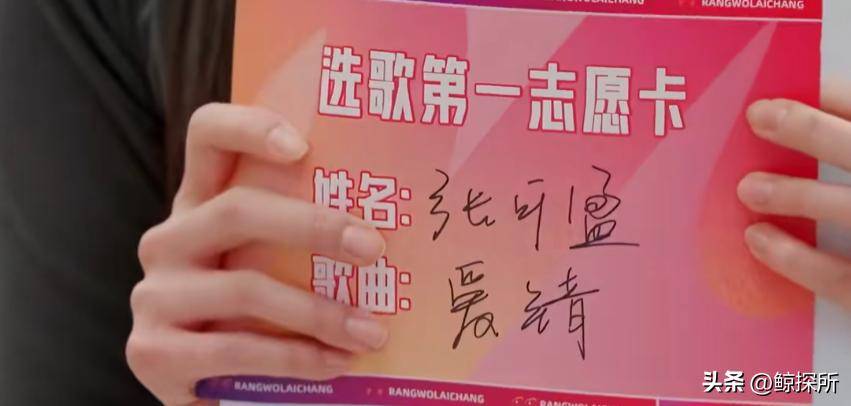 RANGWOLAICHANG
RANGWOLAICHANG
选歌第一志愿卡
姓名: 张可盈
歌曲: 爱情
RANGWOLAICHANG
RANGWOLAICHANG
RANGWOLAICHANG
头条 @鲸探所